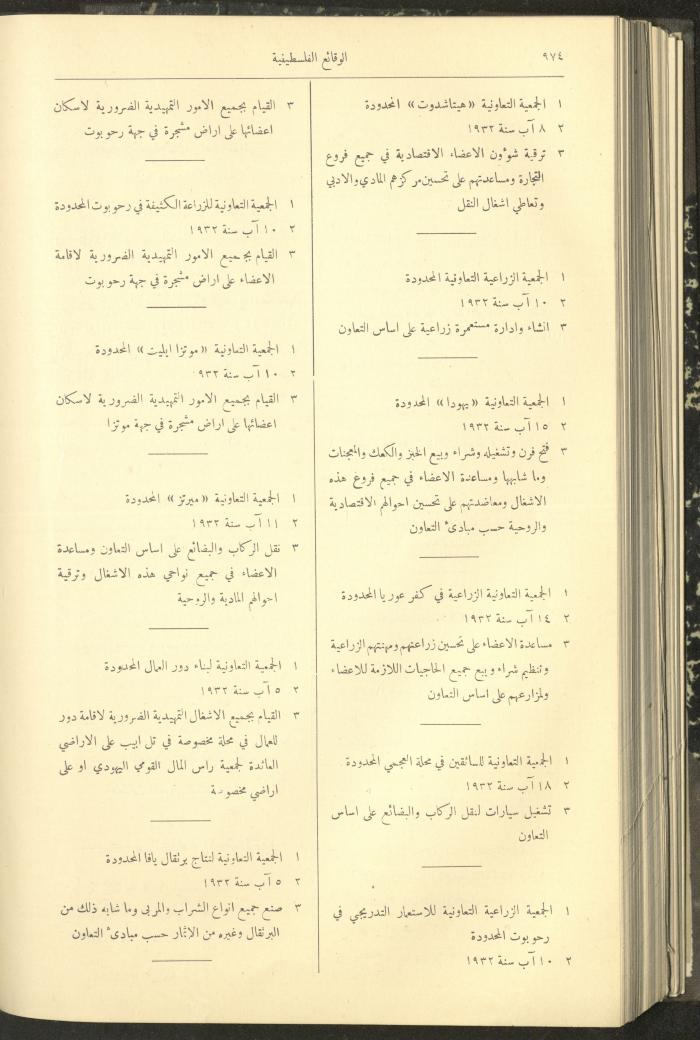 ٩٧٤
الوقائع الفلسطينية
١ الجمعية التعاونية «هيتاشدوت» المحدودة
٢ ٨ آب سنة ١٩٣٢
٣ ترقية شؤون الاعضاء الاقتصادية في جميع فروع
التجارة ومساعدتهم على تحسين مركزهم المادي والادبي
وتعاطي اشغال النقل
١ الجمعية الزراعية التعاونية المحدودة
٢ ١٠ آب سنة ١٩٣٢
٣ انشاء وادارة مستعمرة زراعية على اساس التعاون
١ الجمعية التعاونية «يهودا» المحدودة
٢ ١٥ آب سنة ١٩٣٢
٣ فتح فرن وتشغيله وشراء وبيع الخبز والكعك والمعجنات
وما شابهها ومساعدة الاعضاء في جميع فروع هذه
الاشغال ومعاضدتهم على تحسين احوالهم الاقتصادية
والروحية حسب مبادئ التعاون
١ الجمعية التعاونية الزراعية في كفر عوريا المحدودة
٢ ١٤ آب سنة ١٩٣٢
٣ مساعدة الاعضاء على تحسين زراعتهم ومهنتهم الزراعية
وتنظيم شراء وبيع جميع الحاجيات اللازمة للاعضاء
ولمزارعهم على اساس التعاون
١ الجمعية التعاونية للسائقين في محلة العجمي المحدودة
٢ ١٨ آب سنة ١٩٣٢
٣ تشغيل سيارات لنقل الركاب والبضائع على اساس
التعاون
١ الجمعية الزراعية التعاونية للاستعمار التدريجي في
رحوبوت المحدودة
٢ ١٠ آب سنة ١٩٣٢
٣ القيام بجميع الامور التمهيدية الضرورية لاسكان
اعضائها على اراض مشجرة في جهة رحوبوت
١ الجمعية التعاونية للزراعة الكثيفة في رحوبوت المحدودة
٢ ١٠ آب سنة ١٩٣٢
٣ القيام بجميع الامور التمهيدية الضرورية لاقامة
الاعضاء على اراض مشجرة في جهة رحوبوت
١ الجمعية التعاونية «موتزا ايليت» المحدودة
٢ ١٠ آب سنة ٩٣٢
٣ القيام بجميع الامور التمهيدية الضرورية لاسكان
اعضائها على اراض مشجرة في جهة موتزا
١ الجمعية التعاونية «ميرتز» المحدودة
٢ ١١ آب سنة ١٩٣٢
٣ نقل الركاب والبضائع على اساس التعاون ومساعدة
الاعضاء في جميع نواحي هذه الاشغال وترقية
احوالهم المادية والروحية
١ الجمعية التعاونية لبناء دور العمال المحدودة
٢ ٥ آب سنة ١٩٣٢
٣ القيام بجميع الاشغال التمهيدية الضرورية لاقامة دور
للعمال في محلة مخصوصة في تل ابيب على الاراضي
العائدة لجمعية راس المال القومي اليهودي او على
اراضي مخصوصة
١ الجمعية التعاونية لنتاج برتقال يافا المحدودة
٢ ٥ آب سنة ١٩٣٢
٣ صنع جميع انواع الشراب والمربى وما شابه ذلك من
البرتقال وغيره من الاثمار حسب مبادئ التعاون